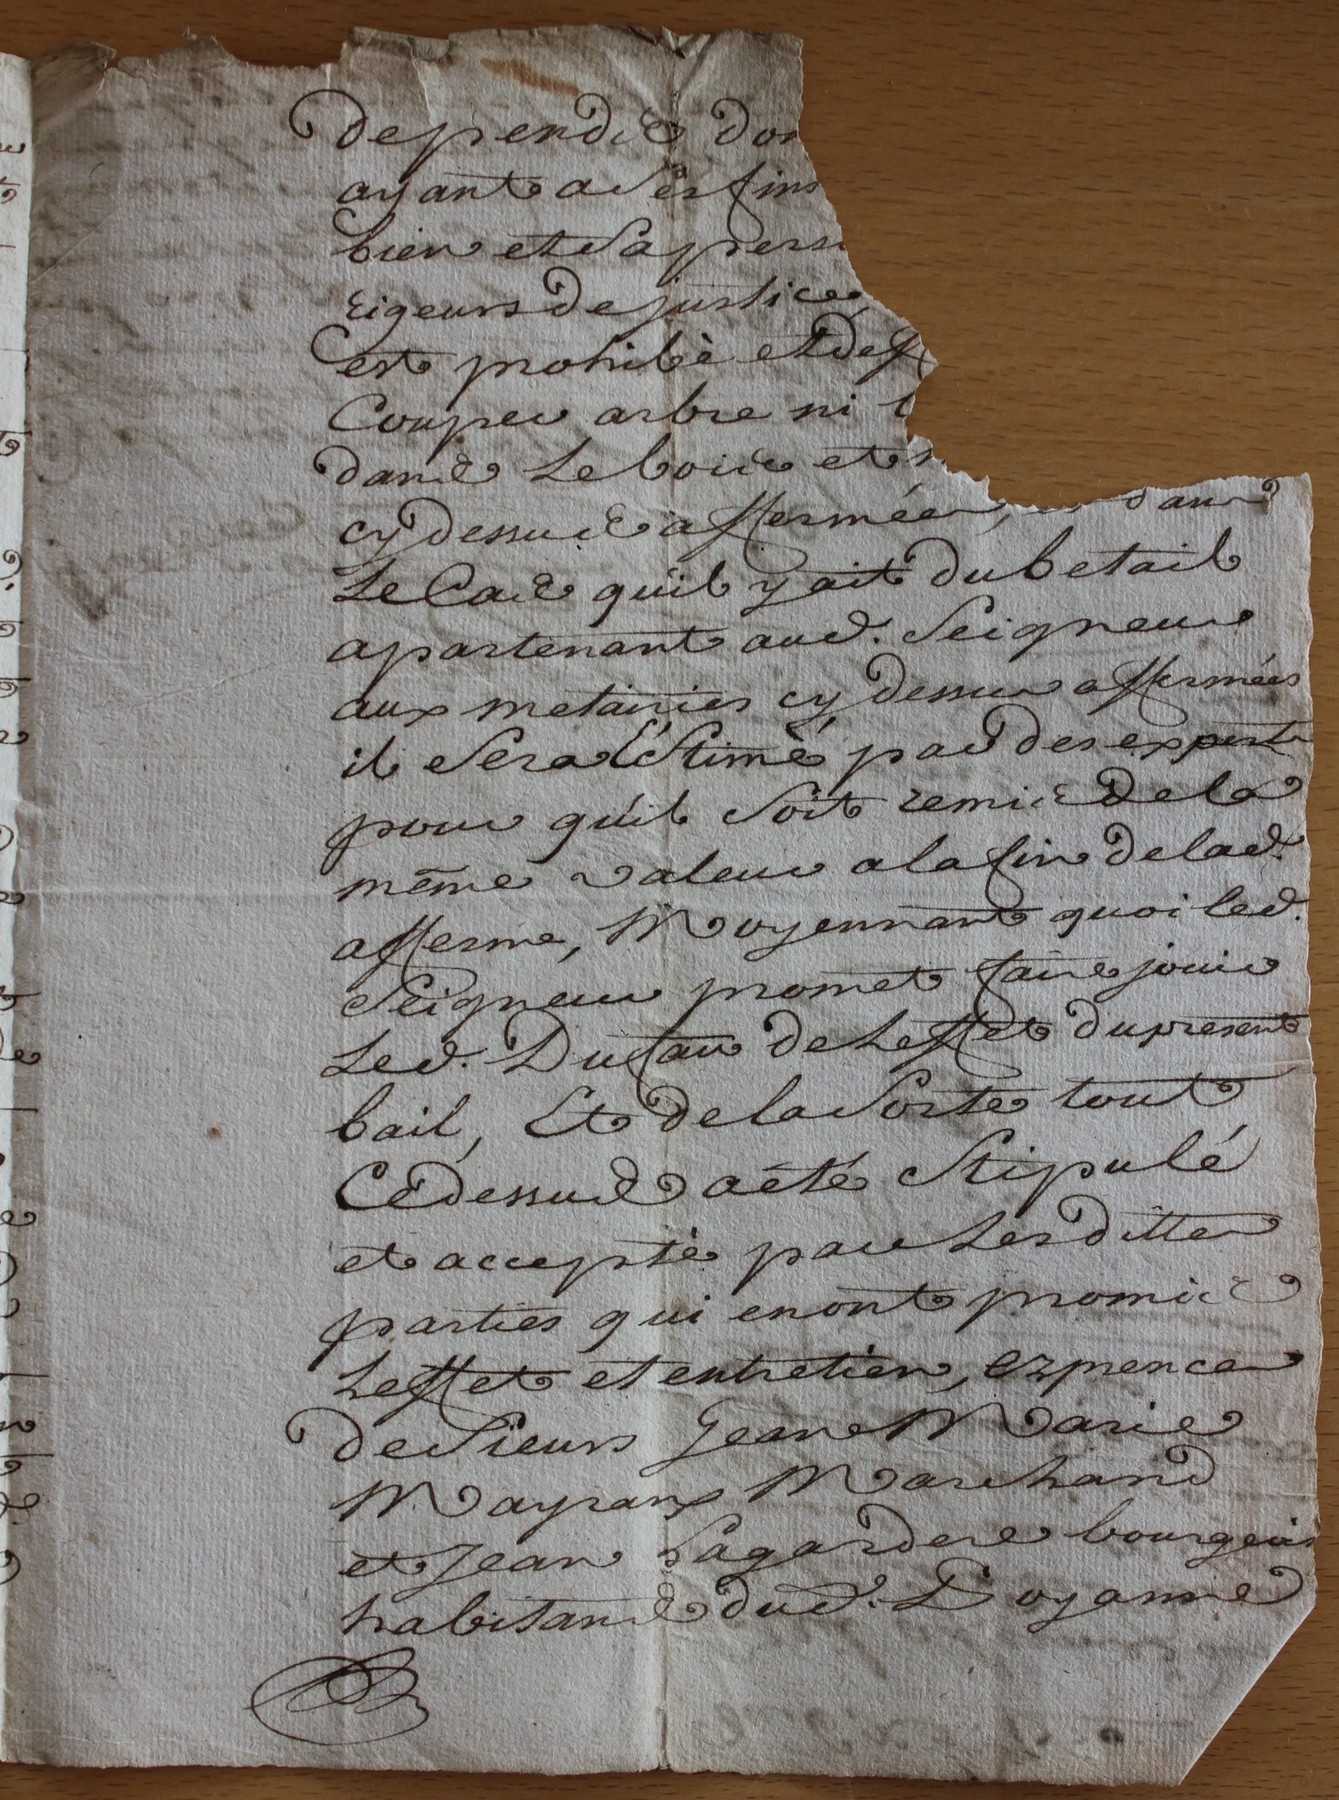 depends don
ayant a ses fins
bien et sa pers
rigeurs de justice
est prohibé et deff
Couper arbre ni l
dans le bois et
cy dessus affermées, dans
Le Cas qu'il y ait du betail
apartenant aud. Seigneur
aux metairies cy dessus affermées
il sera Estimé par des experts
pour qu'il soit remis de la
même valeur a la fin de lad.
afferme, Moyennant quoi led.
Seigneur promet faire jouir
led. Dufau de Leffet du present
bail, Et de la sorte tout
Ce dessus a été Stipulé
et accepté par les dittes
parties qui en ont promis
Leffet et entretien, ez presences
de Sieurs Jean Marie
Mayranx Marchand
et Jean Lagardere bourgeois
habitans dud. Poyanne